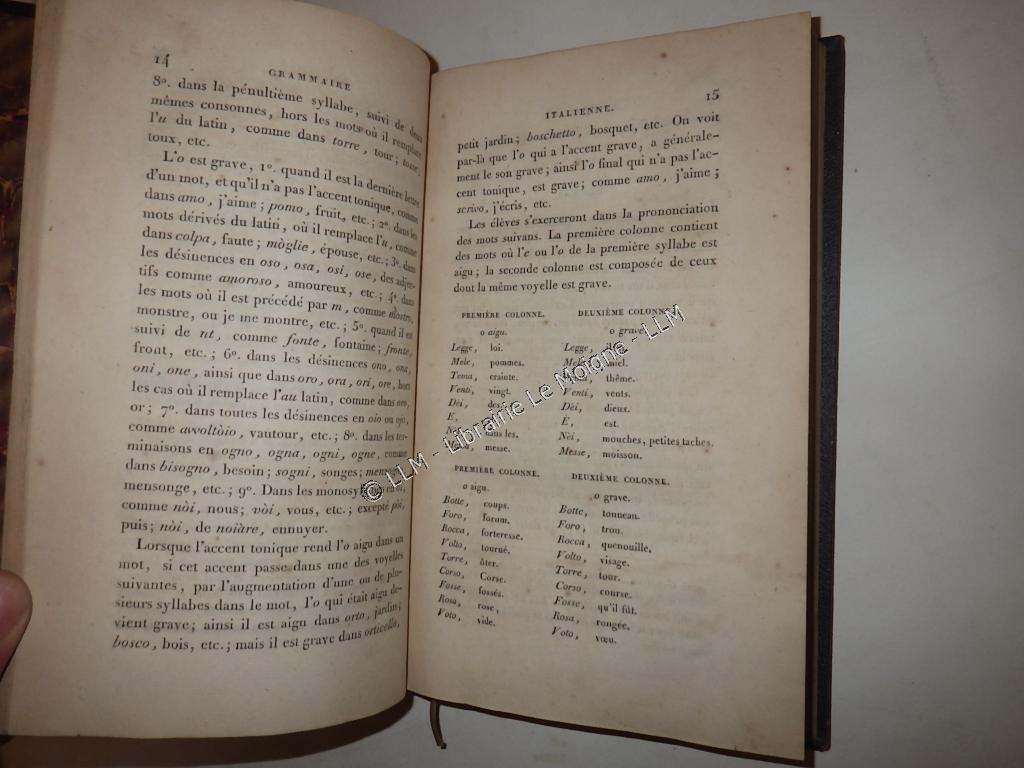 14
GRAMMAIRE
8º. dans la pénultième syllabe, suivi de deux
mêmes consonnes, hors les mots où il remplace
l'u du latin, comme dans torre, tour; tosse,
toux, etc.
L'o est grave, 1º. quand il est la dernière lettre
d'un mot, et qu'il n'a pas l'accent tonique, comme
dans amo, j'aime; pomo, fruit, etc.; 2º. dans les
mots dérivés du latin, où il remplace l'u, comme
dans colpa, faute; mòglie, épouse, etc.; 3º. dans
les désinences en oso, osa, osi, ose, des adjec-
tifs comme amoroso, amoureux, etc.; 4º. dans
les mots où il est précédé par m, comme mostro,
monstre, ou je me montre, etc.; 5º. quand il est
suivi de nt, comme fonte, fontaine; fronte,
front, etc.; 6º. dans les désinences ono, ona,
oni, one, ainsi que dans oro, ora, ori, ore, hors
les cas où il remplace l'au latin, comme dans oro,
or; 7º. dans toutes les désinences en oio ou ojo,
comme avvoltòio, vautour, etc.; 8º. dans les ter-
minaisons en ogno, ogna, ogni, ogne, comme
dans bisogno, besoin; sogni, songes;
mensonge, etc.; 9º. Dans les monosyllabes en oi,
comme nòi, nous; vòi, vous, etc.; excepté pòi,
puis; nòi, de noiàre, ennuyer.
Lorsque l'accent tonique rend l'o aigu dans un
mot, si cet accent passe dans une des voyelles
suivantes, par l'augmentation d'une ou de plu-
sieurs syllabes dans le mot, l'o qui était aigu de-
vient grave; ainsi il est aigu dans orto, jardin;
bosco, bois, etc.; mais il est grave dans orticello,
ITALIENNE.
15
petit jardin; boschetto, bosquet, etc. On voit
par-là que l'o qui a l'accent grave, a générale-
ment le son grave; ainsi l'o final qui n'a pas l'ac-
cent tonique, est grave; comme amo, j'aime;
scrivo, j'écris, etc.
Les élèves s'exerceront dans la prononciation
des mots suivans. La première colonne contient
des mots où l'e ou l'o de la première syllabe est
aigu; la seconde colonne est composée de ceux
dont la même voyelle est grave.
PREMIÈRE COLONNE.
o aigu.
Legge, loi.
Mele, pommes.
Tema, crainte.
Venti, vingt.
Dèi, des.
E,
dans les.
messe.
DEUXIÈME COLONNE.
o grave.
Legge,
miel.
thême.
Venti, vents.
Dèi, dieux.
È, est.
Nèi, mouches, petites taches.
Messe, moisson.
PREMIÈRE COLONNE.
o aigu.
Botte, coups.
Foro, forum.
Rocca, forteresse.
Volto, tourné.
Torre, ôter.
Corso, Corse.
Fosse, fossés.
Rosa, rose,
Voto, vide.
DEUXIÈME COLONNE.
o grave.
Botte, tonneau.
Foro, trou.
Rocca, quenouille.
Volto, visage.
Torre, tour.
Corso, course.
Fosse, qu'il fût.
Rosa, rongée.
Voto, vœu.
© LLM - Librairie Le Moigne - LLM